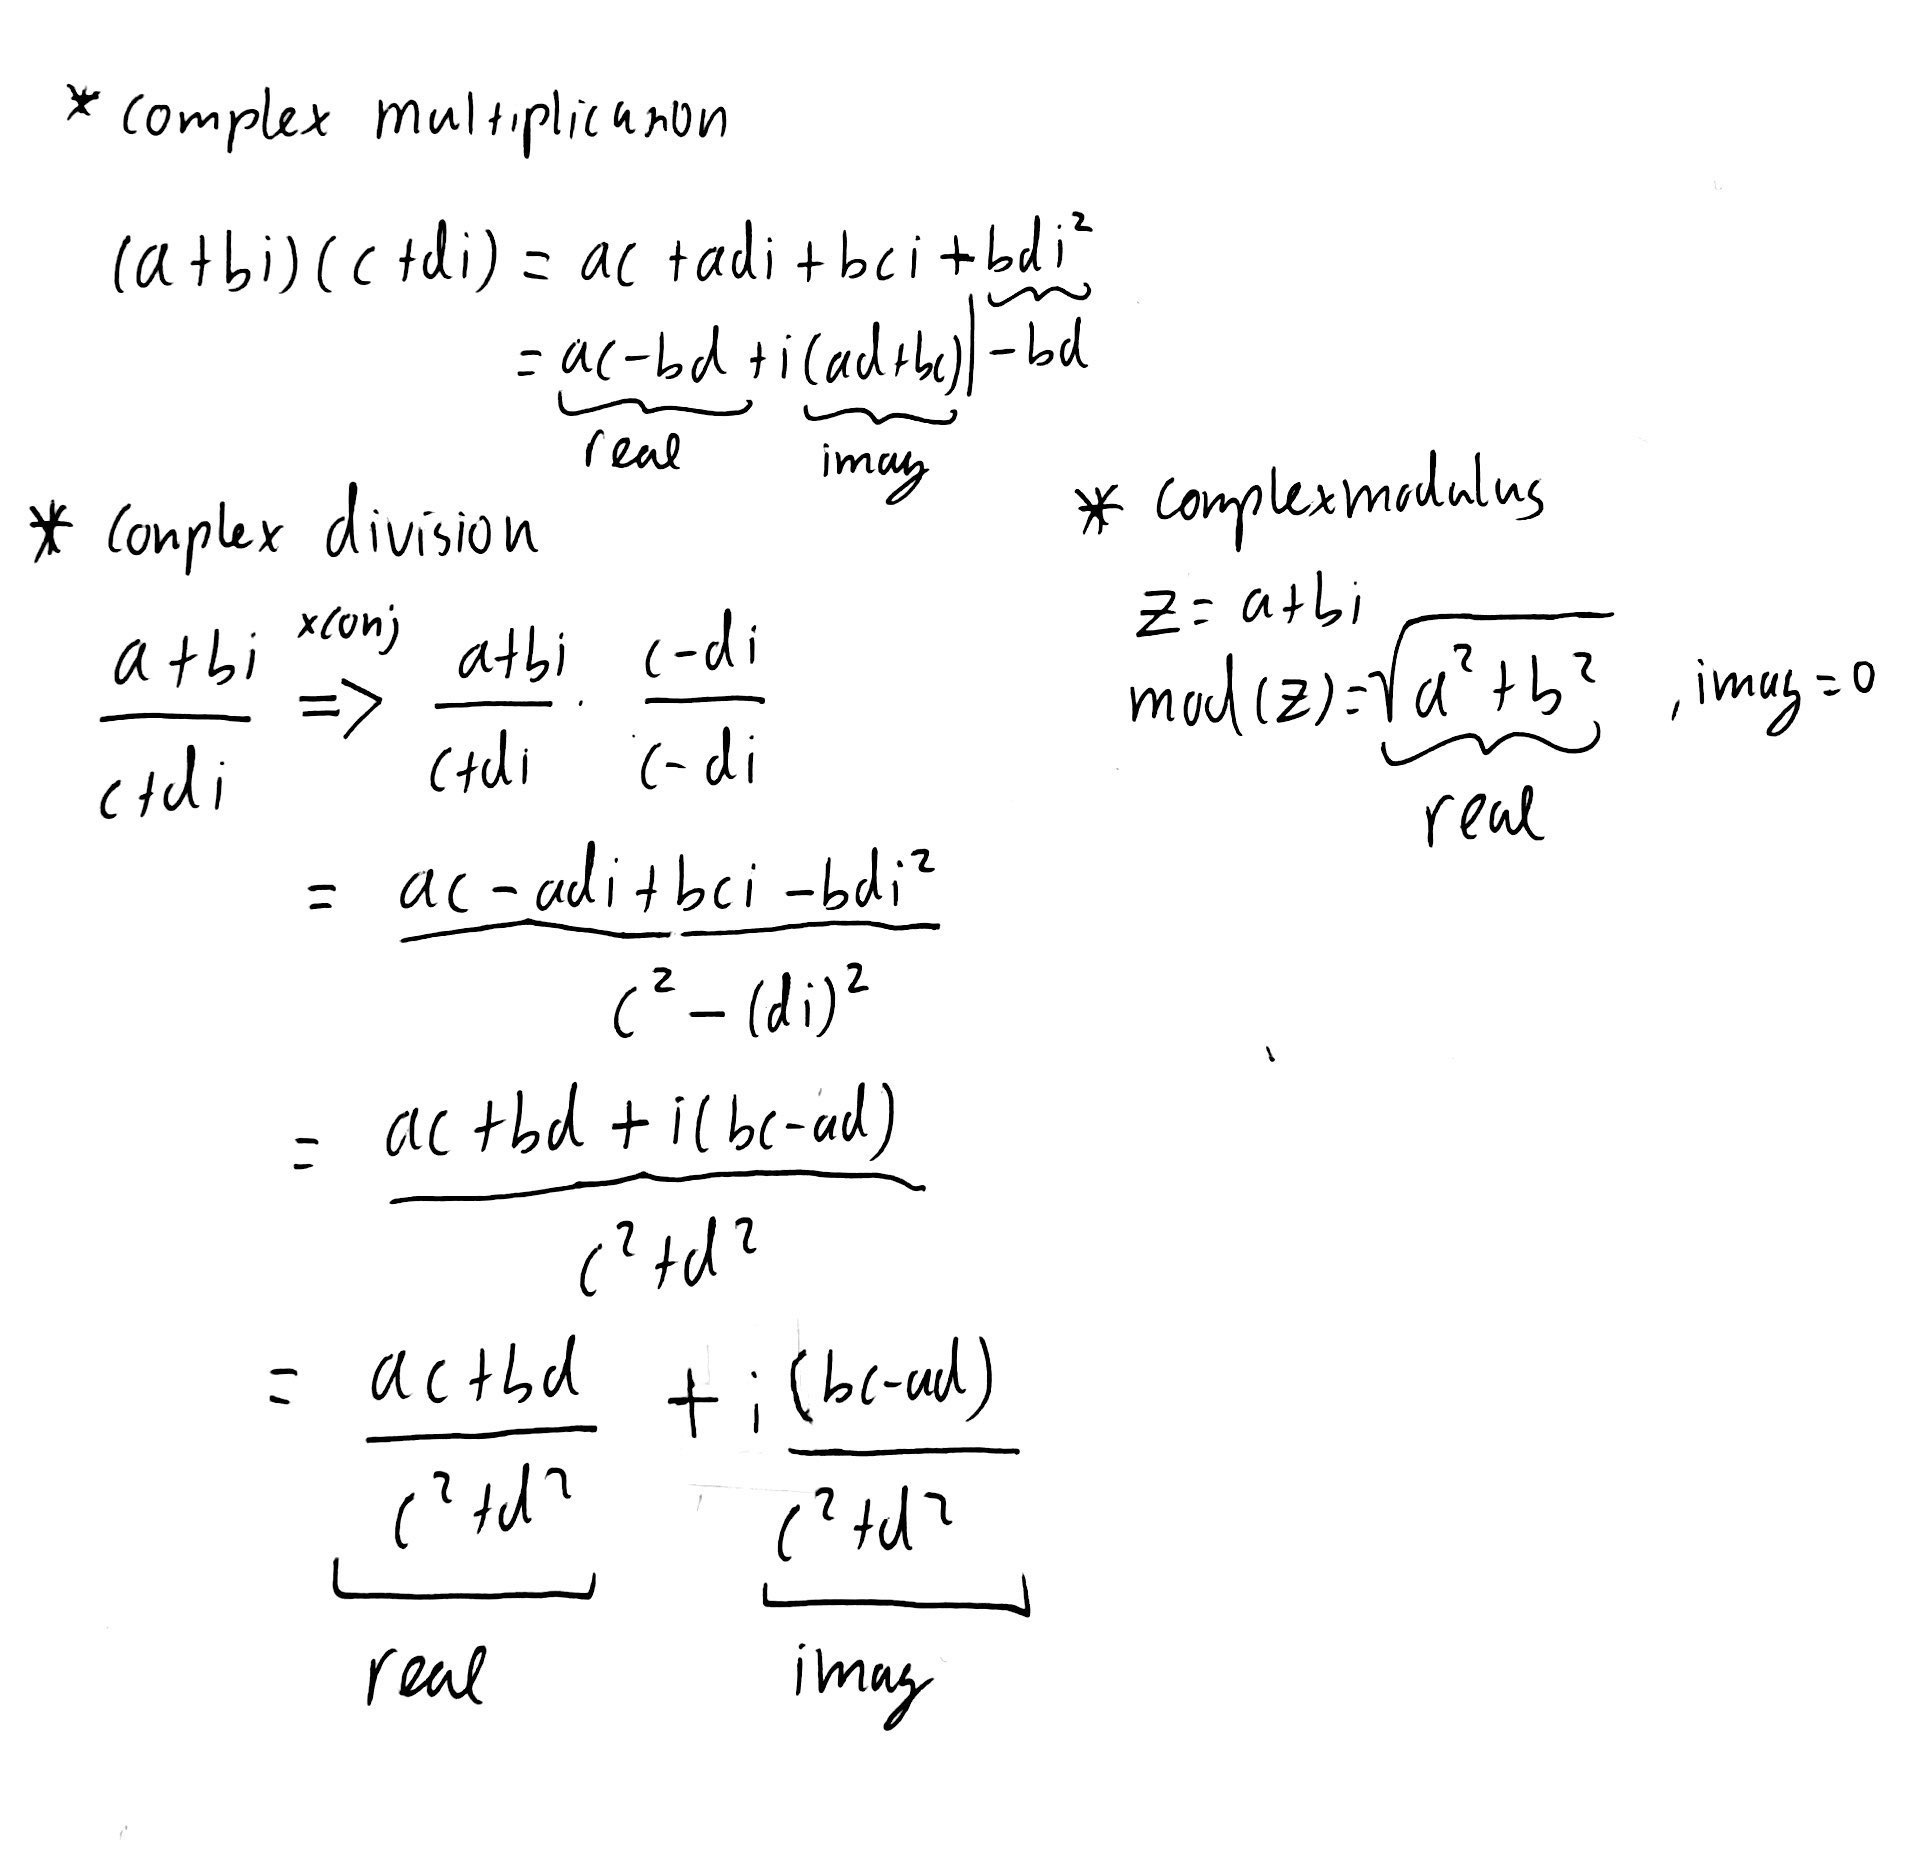 * complex multiplication
(a+bi)(c+di) = ac +adi +bci +bdi²
= ac-bd +i(ad+bc) | -bd
real imag
* complex division
a+bi xconj a+bi c-di
=> .
c+di c+di c-di
= ac - adi +bci -bdi²
c² - (di)²
= ac +bd + i(bc-ad)
c²+d²
= ac+bd + i (bc-ad)
c²+d² c²+d²
real imag
* complex modulus
z= a+bi
mod(z)=√a²+b² , imag=0
real